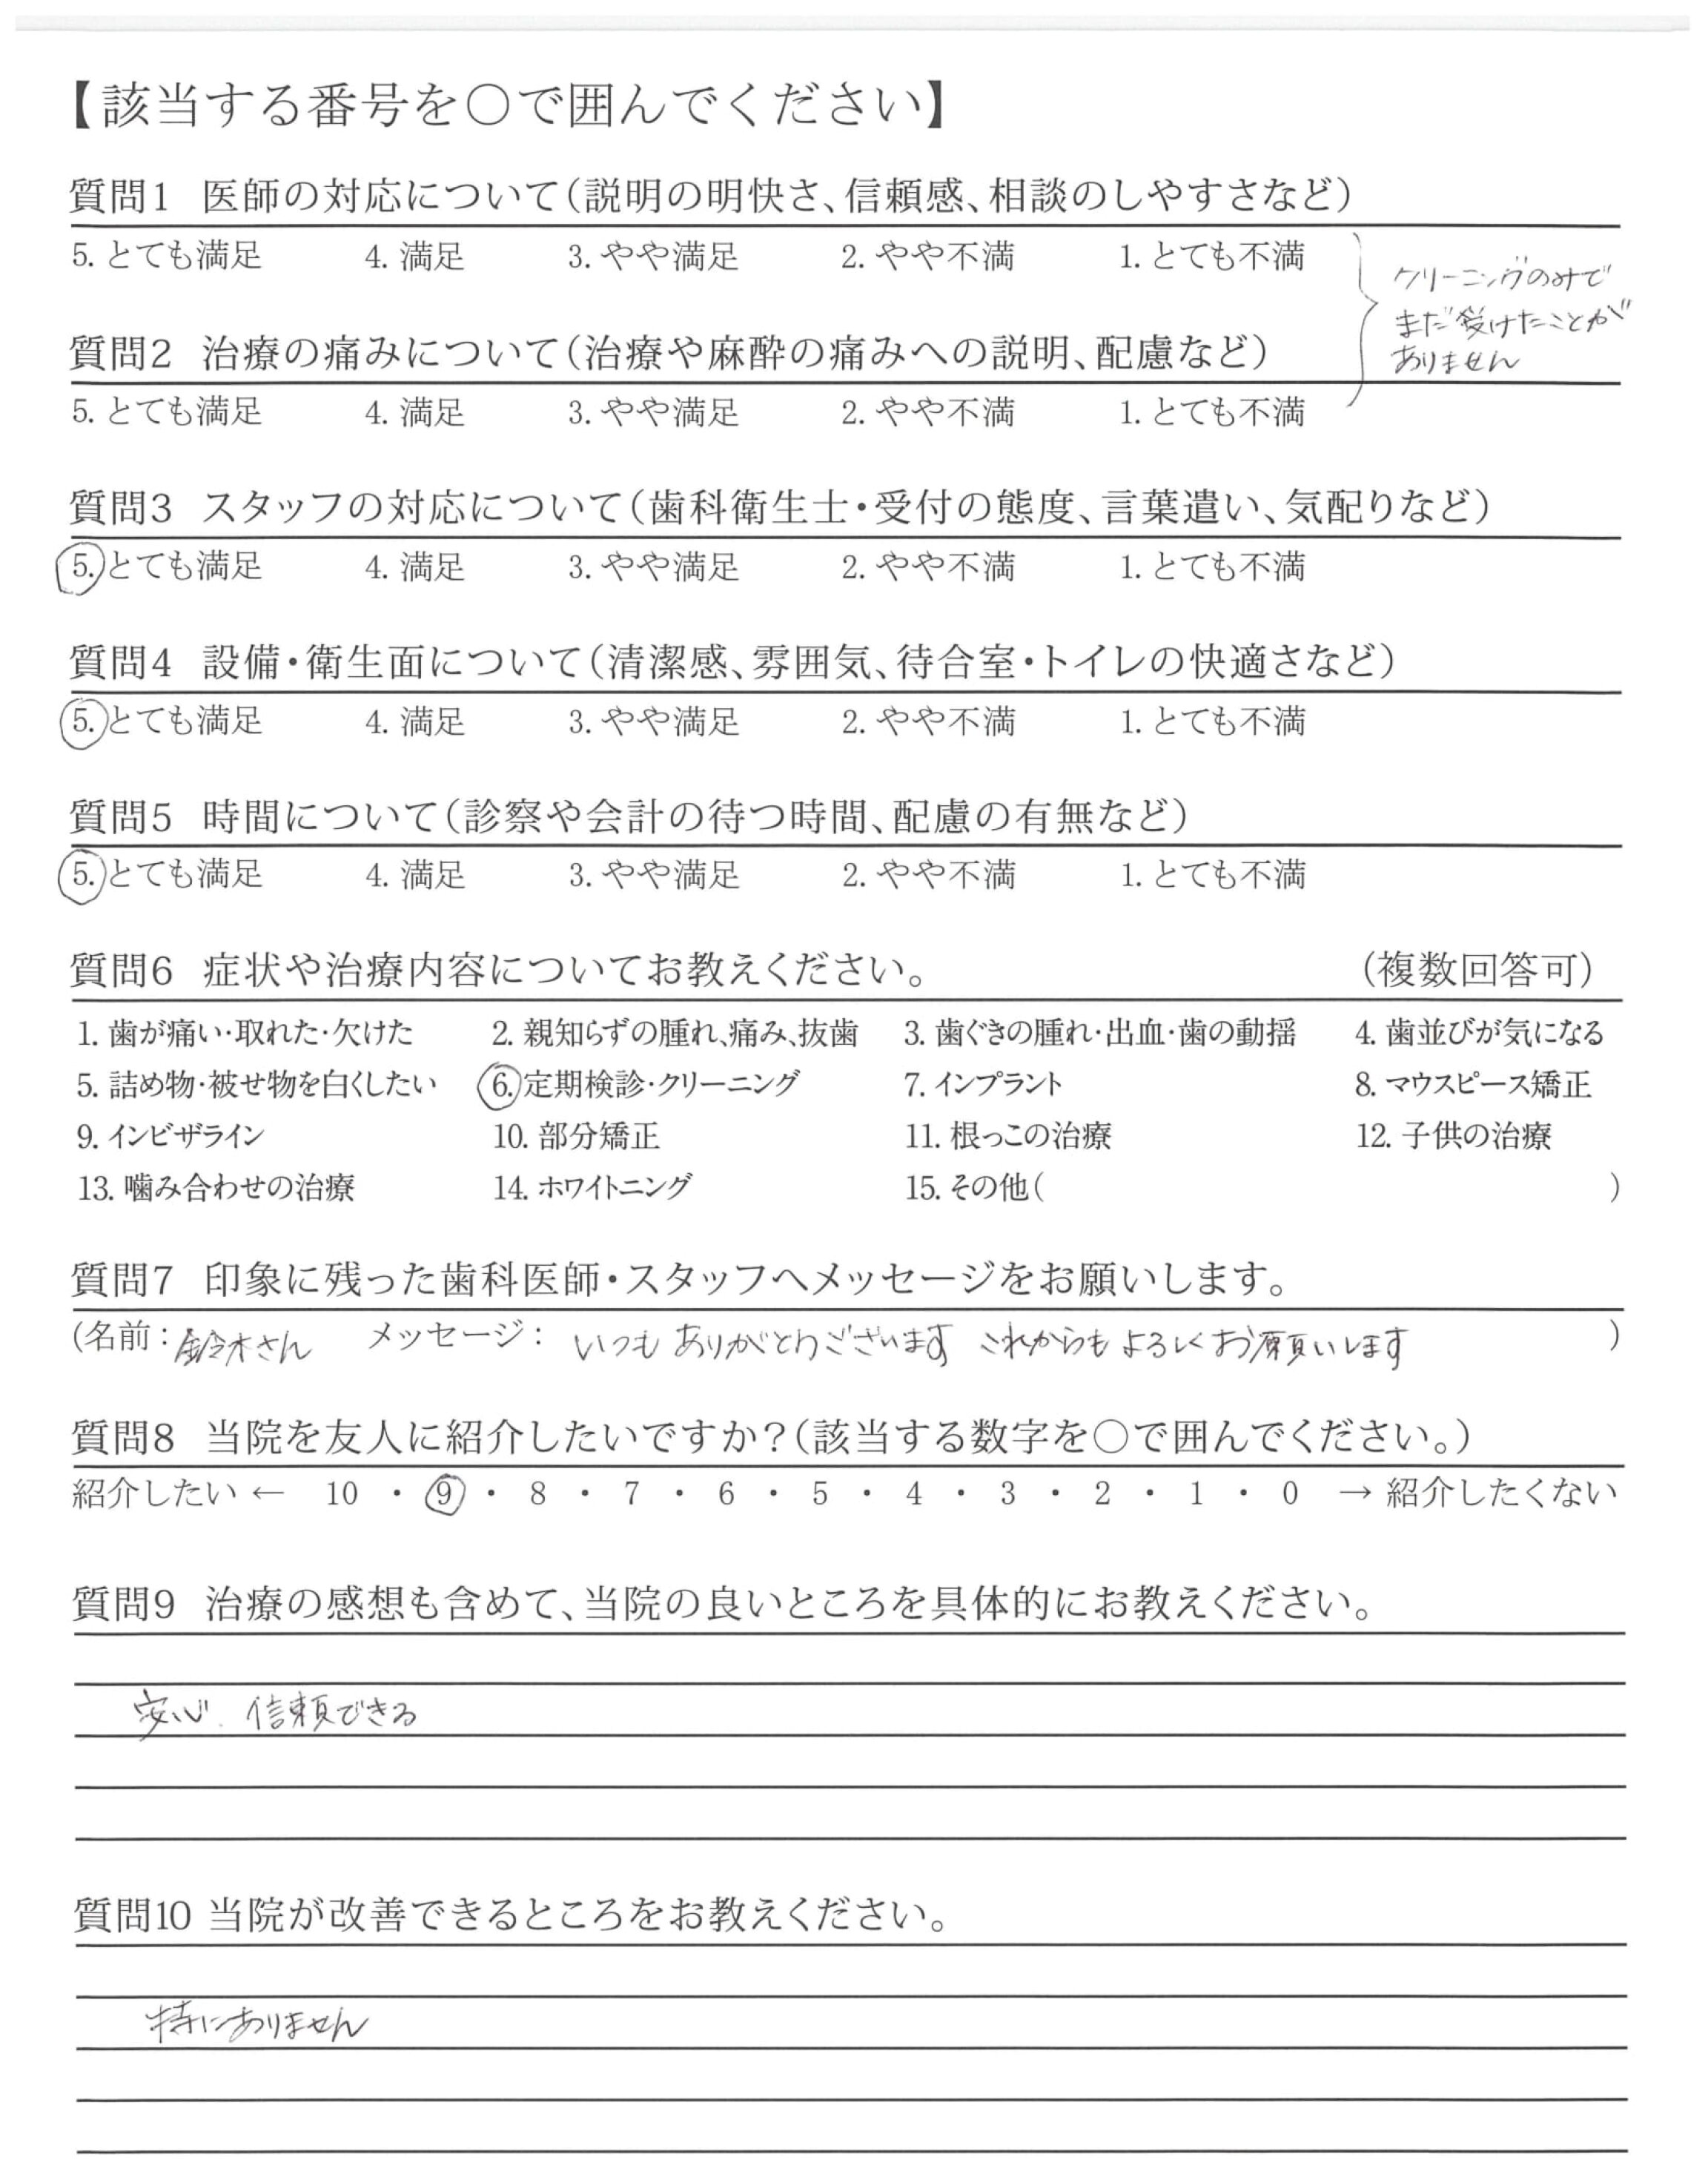 【該当する番号を○で囲んでください】
質問1 医師の対応について(説明の明快さ、信頼感、相談のしやすさなど)
5. とても満足 4. 満足 3. やや満足 2. やや不満 1. とても不満
クリーニングのみで
まだ受けたことが
ありません
質問2 治療の痛みについて(治療や麻酔の痛みへの説明、配慮など)
5. とても満足 4. 満足 3. やや満足 2. やや不満 1. とても不満
質問3 スタッフの対応について(歯科衛生士・受付の態度、言葉遣い、気配りなど)
5. とても満足 4. 満足 3. やや満足 2. やや不満 1. とても不満
質問4 設備・衛生面について(清潔感、雰囲気、待合室・トイレの快適さなど)
5. とても満足 4. 満足 3. やや満足 2. やや不満 1. とても不満
質問5 時間について(診察や会計の待つ時間、配慮の有無など)
5. とても満足 4. 満足 3. やや満足 2. やや不満 1. とても不満
質問6 症状や治療内容についてお教えください。 (複数回答可)
1. 歯が痛い・取れた・欠けた 2. 親知らずの腫れ、痛み、抜歯 3. 歯ぐきの腫れ・出血・歯の動揺 4. 歯並びが気になる
5. 詰め物・被せ物を白くしたい 6. 定期検診・クリーニング 7. インプラント 8. マウスピース矯正
9. インビザライン 10. 部分矯正 11. 根っこの治療 12. 子供の治療
13. 噛み合わせの治療 14. ホワイトニング 15. その他( )
質問7 印象に残った歯科医師・スタッフへメッセージをお願いします。
(名前：鈴木さん メッセージ： いつもありがとうございます これからもよろしくお願いします )
質問8 当院を友人に紹介したいですか？(該当する数字を○で囲んでください。)
紹介したい ← 10 ・ 9 ・ 8 ・ 7 ・ 6 ・ 5 ・ 4 ・ 3 ・ 2 ・ 1 ・ 0 → 紹介したくない
質問9 治療の感想も含めて、当院の良いところを具体的にお教えください。
安心、信頼できる
質問10 当院が改善できるところをお教えください。
特にありません